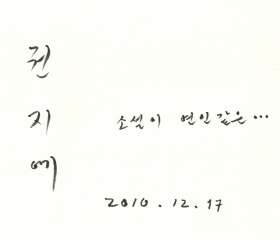 권지예
소설이 연인같은...
2010. 12. 17